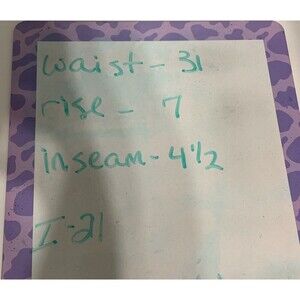 waist - 31
rise - 7
inseam - 4 1/2
I-21